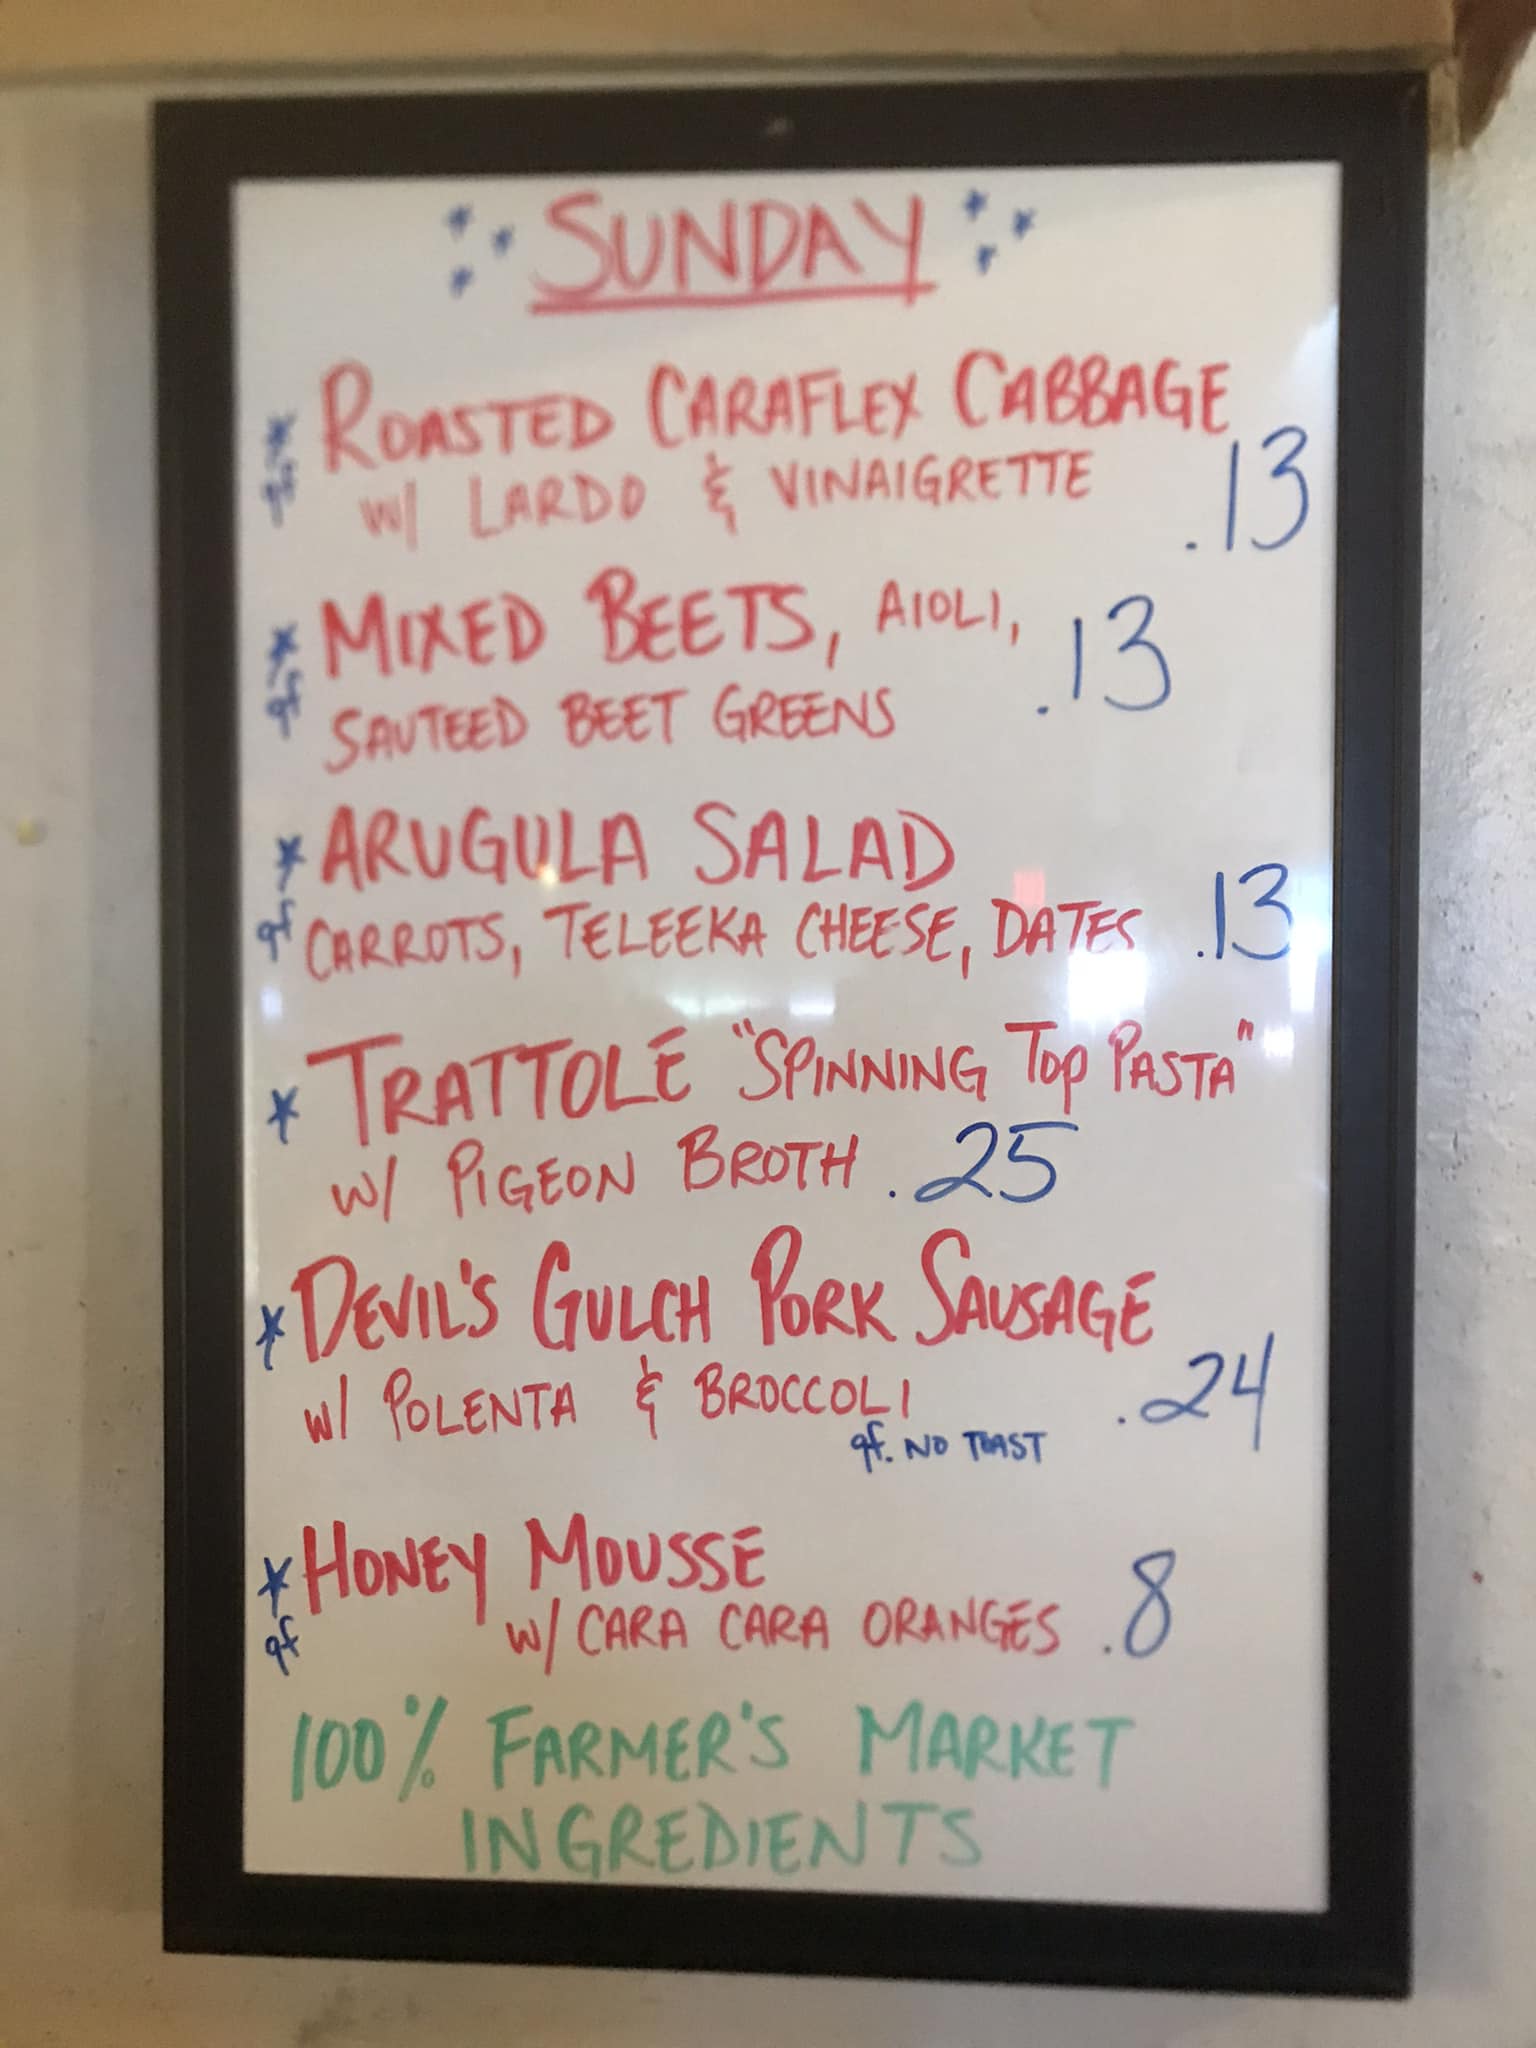 SUNDAY
* ROASTED CARAFLEX CABBAGE
gf w/ LARDO & VINAIGRETTE .13
* MIXED BEETS, AIOLI,
gf SAUTEED BEET GREENS .13
* ARUGULA SALAD
gf CARROTS, TELEEKA CHEESE, DATES .13
* TRATTOLE "SPINNING TOP PASTA"
w/ PIGEON BROTH .25
* DEVIL'S GULCH PORK SAUSAGE
w/ POLENTA & BROCCOLI .24
gf. NO TOAST
* HONEY MOUSSE
gf w/ CARA CARA ORANGES .8
100% FARMER'S MARKET
INGREDIENTS